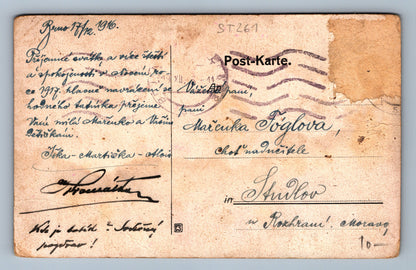 Brno 17/12. 1916.
Příjemné svátky a více štěstí
a spokojenosti v novém ro-
ce 1917. hlavně navrácení
hodného tatíčka přejeme
Vám milá Mařenko a Vašim
Jožka - Martička - Alois
Kde je tatík - Srdečný
pozdrav!
ST261
Post-Karte.
Vážená paní,
paní
Mařenka Fóglova,
choť nadučitele
in Studlov
u Rozhraní, Morava
10-